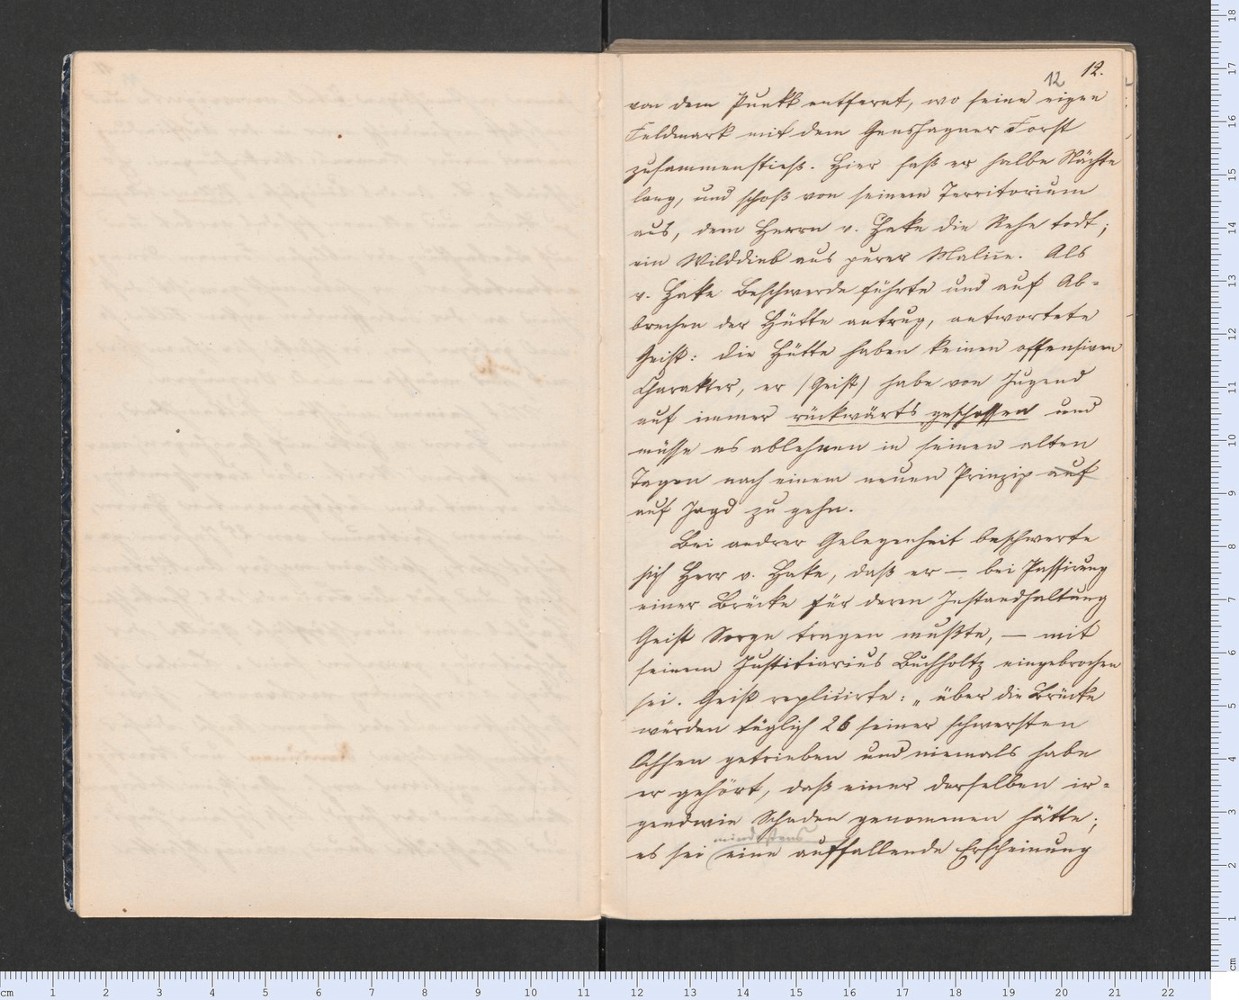 12 12.
von dem Punkt entfernt, wo seine eigene
Feldmark mit dem Genshagner Forst
zusammenstieß. Hier saß er halbe Nächte
lang, und schoß von seinem Territorium
aus, dem Herrn v. Hake die Rehe todt;
ein Wilddieb aus purer Malice. Als
v. Hake Beschwerde führte und auf Ab-
brechen der Hütte antrug, antwortete
Geist: die Hütte haben keinen offensiven
Charakter, er (Geist) habe von Jugend
auf immer rückwärts geschossen und
müsse es ablehnen in seinen alten
Tagen nach einem neuen Prinzip auf
auf Jagd zu gehn.
Bei andrer Gelegenheit beschwerte
sich Herr v. Hake, daß er — bei Passirung
einer Brücke für deren Instandhaltung
Geist Sorge tragen mußte, — mit
seinem Justitiarius Buchholtz eingebrochen
sei. Geist replicirte: „über die Brücke
würden täglich 26 seiner schwersten
Ochsen getrieben und niemals habe
er gehört, daß einer derselben ir-
gendwie Schaden genommen hätte;
mindestens
es sei eine auffallende Erscheinung